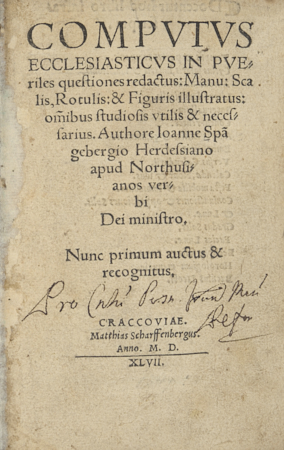 COMPVTVS
ECCLESIASTICVS IN PVE-
riles questiones redactus: Manu: Sca
lis, Rotulis: & Figuris illustratus:
om̃ibus studiosis vtilis & neces-
sarius. Authore Ioanne Spã
gebergio Herdessiano
apud Northusi-
anos ver-
bi
Dei ministro,
Nunc primum auctus &
recognitus,
Pro
CRACCOVIAE.
Matthias Scharffenbergus.
Anno. M. D.
XLVII.